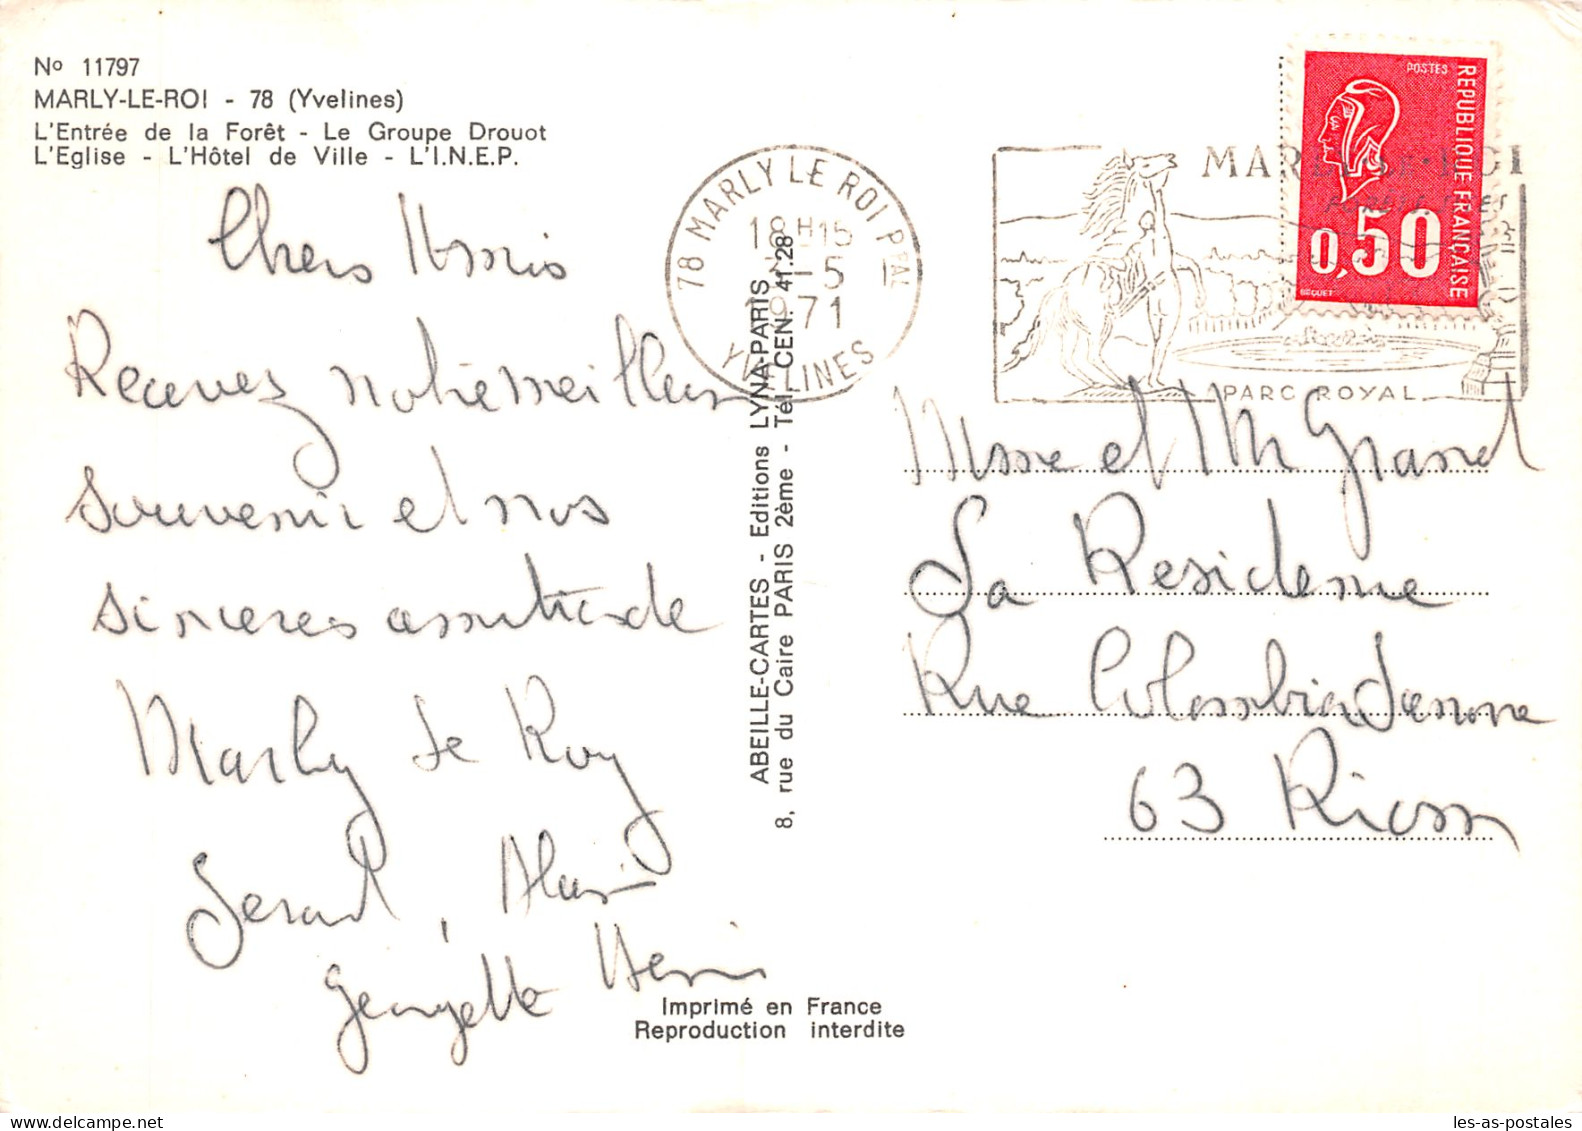 No 11797
MARLY-LE-ROI - 78 (Yvelines)
L'Entrée de la Forêt - Le Groupe Drouot
L'Eglise - L'Hôtel de Ville - L'I.N.E.P.
Chers Amis
Recevez notre meilleur
souvenir et nos
sinceres amities de
Marly Le Roy
Gerard, Alain
Georgette Henri
ABEILLE-CARTES - Editions LYNA-PARIS
8, rue du Caire PARIS 2ème - Tél. CEN. 41.28
Imprimé en France
Reproduction interdite
78 MARLY LE ROI PPAL
18H15
-5
1971
YVELINES
MARLY LE ROI
PARC ROYAL
POSTES
REPUBLIQUE FRANÇAISE
0,50
BEQUET
Mme et Mr Grand
La Residence
Rue Colombier
63 Riom
les-as-postales